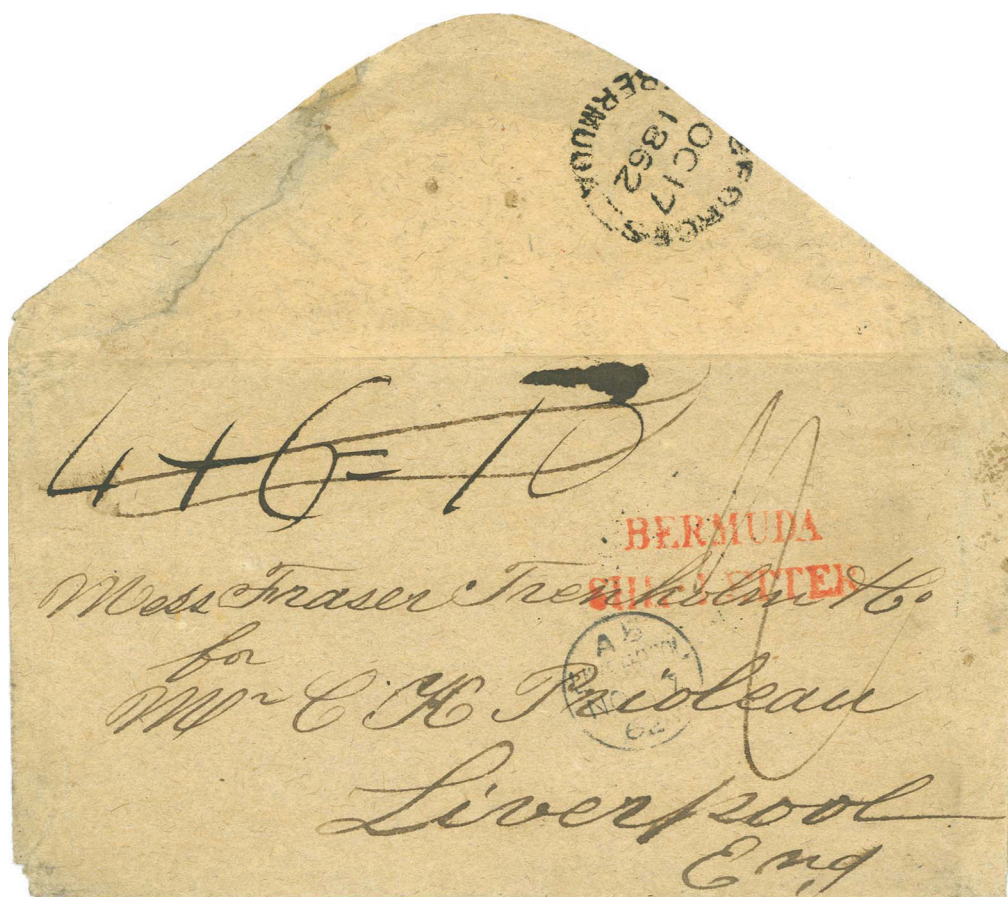 ST GEORGES
BERMUDA
OC 17
1862
4+6=10
BERMUDA
SHIP LETTER
Mess Fraser Trenholm & Co
for
Mr C K Prioleau
Liverpool
Eng
A B
NO
62